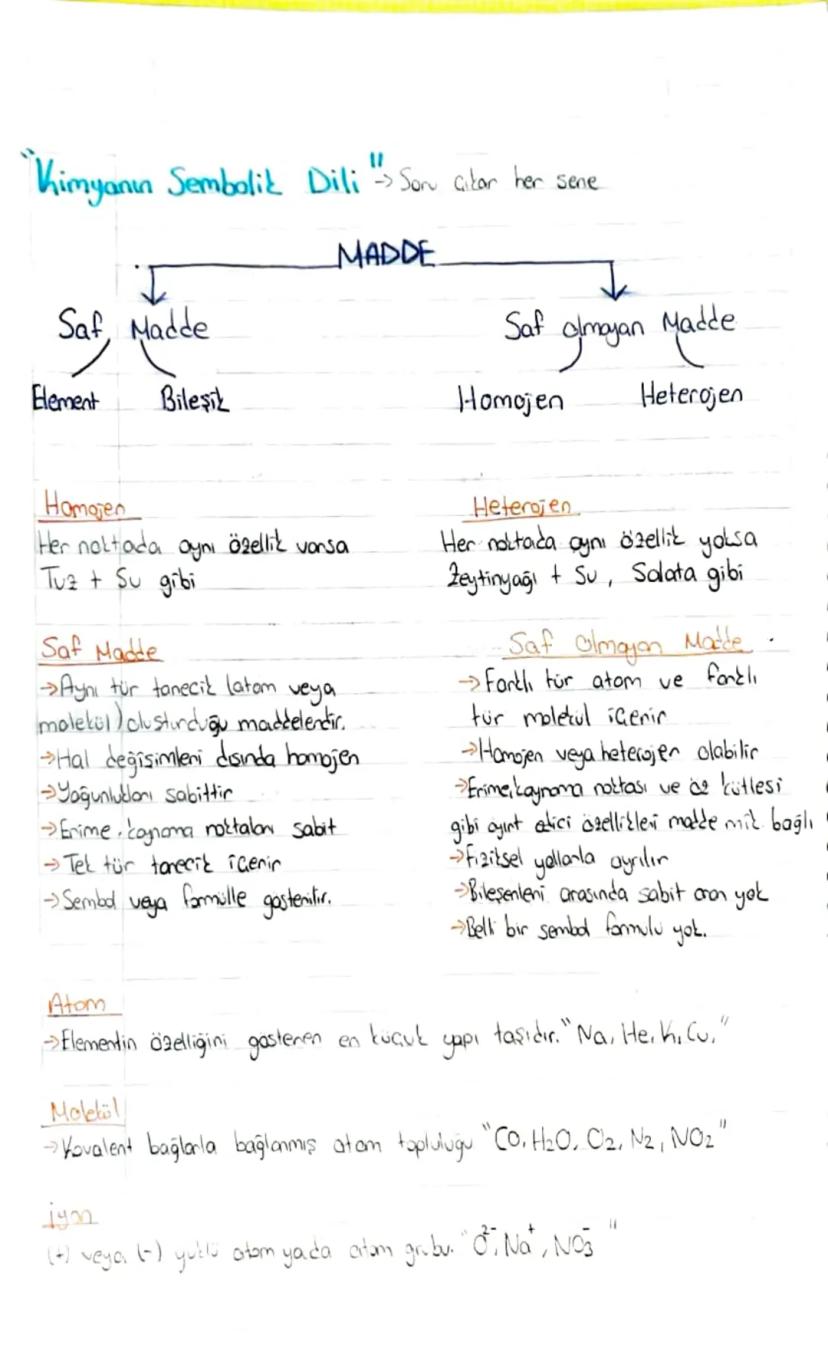 "Kimyanın Sembolik Dili" → Soru çıkar her sene
MADDE
Saf Madde
Saf olmayan Madde
Element
Bileşik
Homojen
Heterojen
Homojen
Her noktada aynı özellik varsa
Tuz + Su gibi
Heterojen
Her noktada aynı özellik yoksa
Zeytinyağı + Su, Salata gibi
Saf Madde
→Aynı tür tanecik (atom veya
molekül) oluşturduğu maddelerdir.
→Hal değişimleri dışında homojen
→Yoğunlukları sabittir
→Erime, kaynama noktaları sabit
→Tek tür tanecik içerir
→Sembol veya formülle gösterilir.
Saf Olmayan Madde
→Farklı tür atom ve farklı
tür molekül içerir
→Homojen veya heterojen olabilir
→Erime, kaynama noktası ve öz kütlesi
gibi ayırt edici özellikleri madde mik. bağlı
→Fiziksel yollarla ayrılır
→Bileşenleri arasında sabit oran yok
→Belli bir sembol formülü yok.
Atom
→Elementin özelliğini gösteren en küçük yapı taşıdır. "Na, He, K, Cu,"
Molekül
→Kovalent bağlarla bağlanmış atom topluluğu "CO, H2O, O2, N2, NO2"
İyon
(+) veya (-) yüklü atom yada atom grubu. "O²⁻, Na⁺, NO₃⁻"